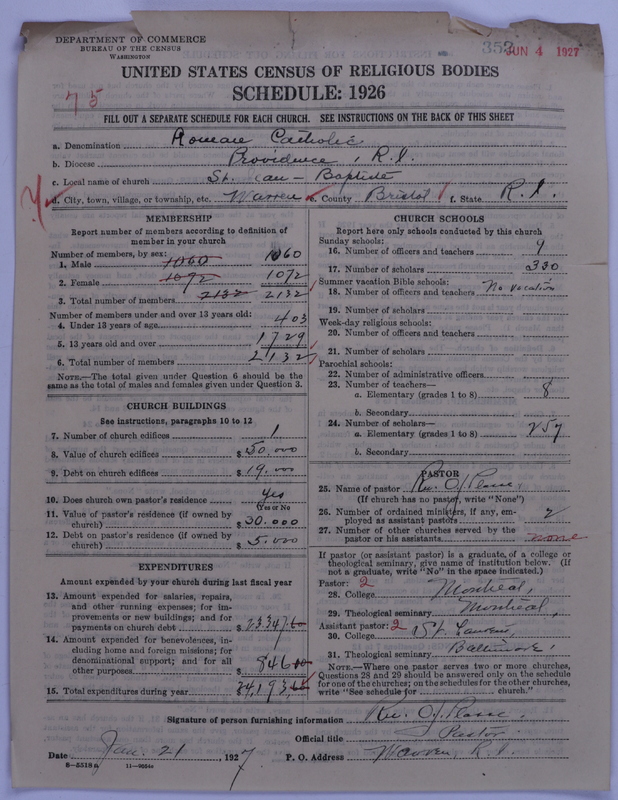 DEPARTMENT OF COMMERCE
BUREAU OF THE CENSUS
WASHINGTON
352
JUN 4 1927
UNITED STATES CENSUS OF RELIGIOUS BODIES
75
SCHEDULE: 1926
FILL OUT A SEPARATE SCHEDULE FOR EACH CHURCH. SEE INSTRUCTIONS ON THE BACK OF THIS SHEET
a. Denomination Roman Catholic
b. Diocese Providence, R.I.
c. Local name of church St. Jean-Baptiste
d. City, town, village, or township, etc. Warren e. County Bristol f. State R.I.
MEMBERSHIP
Report number of members according to definition of
member in your church
Number of members, by sex:
1. Male 1060 1060
2. Female 1072 1072
3. Total number of members 2132 2132
Number of members under and over 13 years old:
4. Under 13 years of age 403
5. 13 years old and over 1729
6. Total number of members 2132
NOTE.—The total given under Question 6 should be
same as the total of males and females given under Question 3.
CHURCH BUILDINGS
See instructions, paragraphs 10 to 12
7. Number of church edifices 1
8. Value of church edifices $50.000
9. Debt on church edifices $19.000
10. Does church own pastor's residence yes
(Yes or No)
11. Value of pastor's residence (if owned by
church) $30.000
12. Debt on pastor's residence (if owned by
church) $5.000
EXPENDITURES
Amount expended by your church during last fiscal year
13. Amount expended for salaries, repairs,
and other running expenses; for im-
provements or new buildings; and for
payments on church debt $
14. Amount expended for benevolences, in-
cluding home and foreign missions; for
denominational support; and for all
other purposes $ 846
15. Total expenditures during year $
CHURCH SCHOOLS
Report here only schools conducted by this church
Sunday schools:
16. Number of officers and teachers
17. Number of scholars 330
Summer vacation Bible schools:
18. Number of officers and teachers No vacation
19. Number of scholars
Week-day religious schools:
20. Number of officers and teachers
21. Number of scholars
Parochial schools:
22. Number of administrative officers
23. Number of teachers—
a. Elementary (grades 1 to 8) 8
b. Secondary
24. Number of scholars—
a. Elementary (grades 1 to 8) 257
b. Secondary
PASTOR
25. Name of pastor Rev.
(If church has no pastor, write "None")
26. Number of ordained ministers, if any, em-
ployed as assistant pastors 2
27. Number of other churches served by the
pastor or his assistants none
If pastor (or assistant pastor) is a graduate of a college or
theological seminary, give name of institution below. (If
not a graduate, write "No" in the space indicated.)
Pastor: 2
28. College Montreal,
29. Theological seminary Montreal,
Assistant pastor: 2
30. College St.
31. Theological seminary Baltimore
NOTE.—Where one pastor serves two or more churches,
Questions 28 and 29 should be answered only on the schedule
for one of the churches; on the schedules for the other churches,
write "See schedule for church."
Signature of person furnishing information Rev.
Official title Pastor
Date Jan. 21, 1927 P. O. Address Warren, R.I.
8—5518 a 11—9694